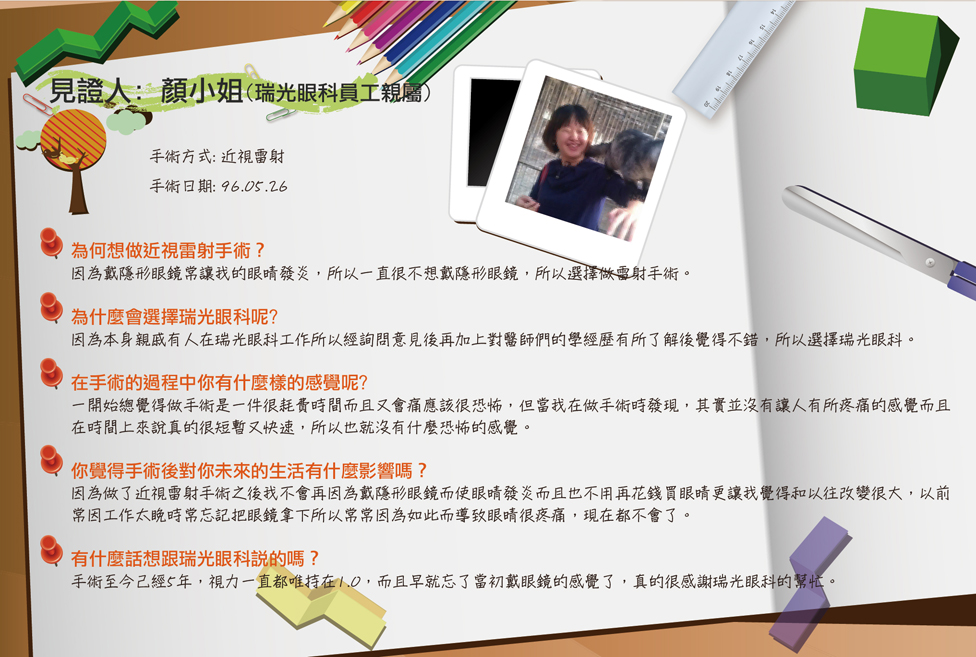 見證人：顏小姐(瑞光眼科員工親屬)
手術方式: 近視雷射
手術日期: 96.05.26
為何想做近視雷射手術？
因為戴隱形眼鏡常讓我的眼睛發炎，所以一直很不想戴隱形眼鏡，所以選擇做雷射手術。
為什麼會選擇瑞光眼科呢?
因為本身親戚有人在瑞光眼科工作所以經詢問意見後再加上對醫師們的學經歷有所了解後覺得不錯，所以選擇瑞光眼科。
在手術的過程中你有什麼樣的感覺呢?
一開始總覺得做手術是一件很耗費時間而且又會痛應該很恐怖，但當我在做手術時發現，其實並沒有讓人有所疼痛的感覺而且
在時間上來說真的很短暫又快速，所以也就沒有什麼恐怖的感覺。
你覺得手術後對你未來的生活有什麼影響嗎？
因為做了近視雷射手術之後我不會再因為戴隱形眼鏡而使眼睛發炎而且也不用再花錢買眼睛更讓我覺得和以往改變很大，以前
常因工作太晚時常忘記把眼鏡拿下所以常常因為如此而導致眼睛很疼痛，現在都不會了。
有什麼話想跟瑞光眼科說的嗎？
手術至今已經5年，視力一直都唯持在1.0，而且早就忘了當初戴眼鏡的感覺了，真的很感謝瑞光眼科的幫忙。